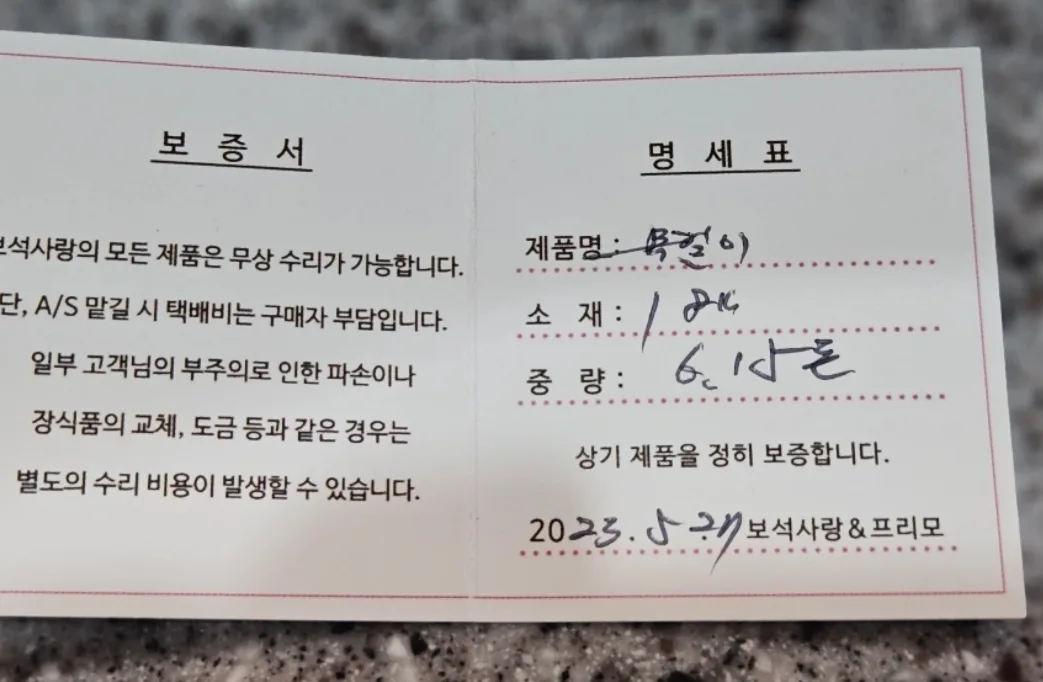 보 증 서
보석사랑의 모든 제품은 무상 수리가 가능합니다.
단, A/S 맡길 시 택배비는 구매자 부담입니다.
일부 고객님의 부주의로 인한 파손이나
장식품의 교체, 도금 등과 같은 경우는
별도의 수리 비용이 발생할 수 있습니다.
명 세 표
제품명 : 목걸이
소 재 : 18K
중 량 : 6.15돈
상기 제품을 정히 보증합니다.
2023. 5. 27 보석사랑&프리모